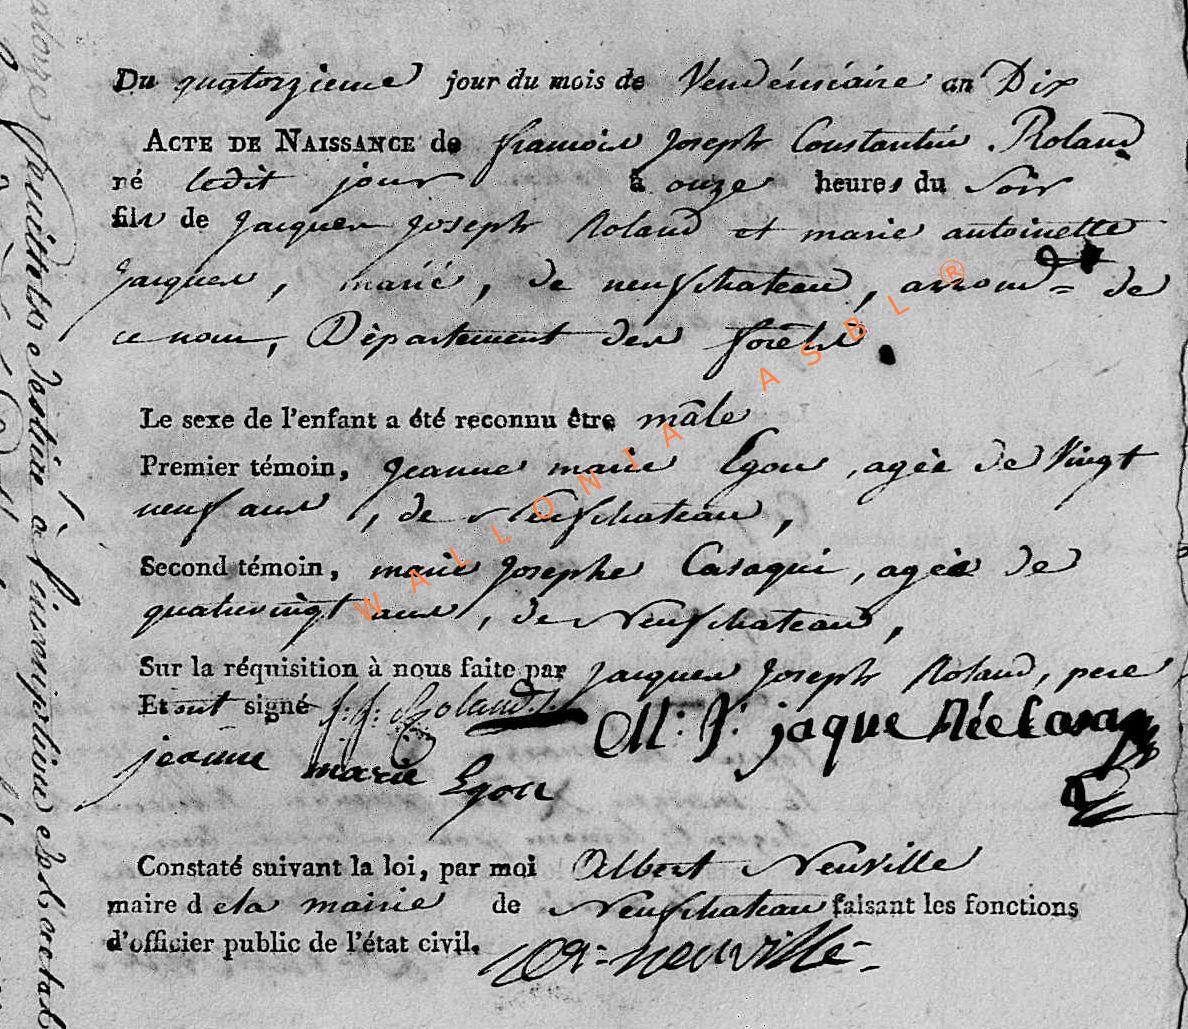 Du quatorzieme jour du mois de Vendémiaire an Dix
ACTE DE NAISSANCE de francois Joseph Constantin Roland
né ledit jour à onze heures du Soir
fils de Jacques Joseph Roland et marie antoinette
Jacques, marié, de neufchateau, arrond= de
ce nom, Département des forêts.
Le sexe de l'enfant a été reconnu être mâle
Premier témoin, Jeanne marie Egon, agée de Vingt
neuf ans, de Neufchateau,
Second témoin, marie Josephe Casaqui, agée de
quatrevingt ans, de Neufchateau,
Sur la réquisition à nous faite par Jacques Joseph Roland, pere
Et ont signé j: j: Roland
M: J: jaque Née Casa
jeanne marie Egon
Constaté suivant la loi, par moi Albert Neuville
maire dela mairie de Neufchateau faisant les fonctions
d'officier public de l'état civil. A: neuville
WALLONIA ASBL ®